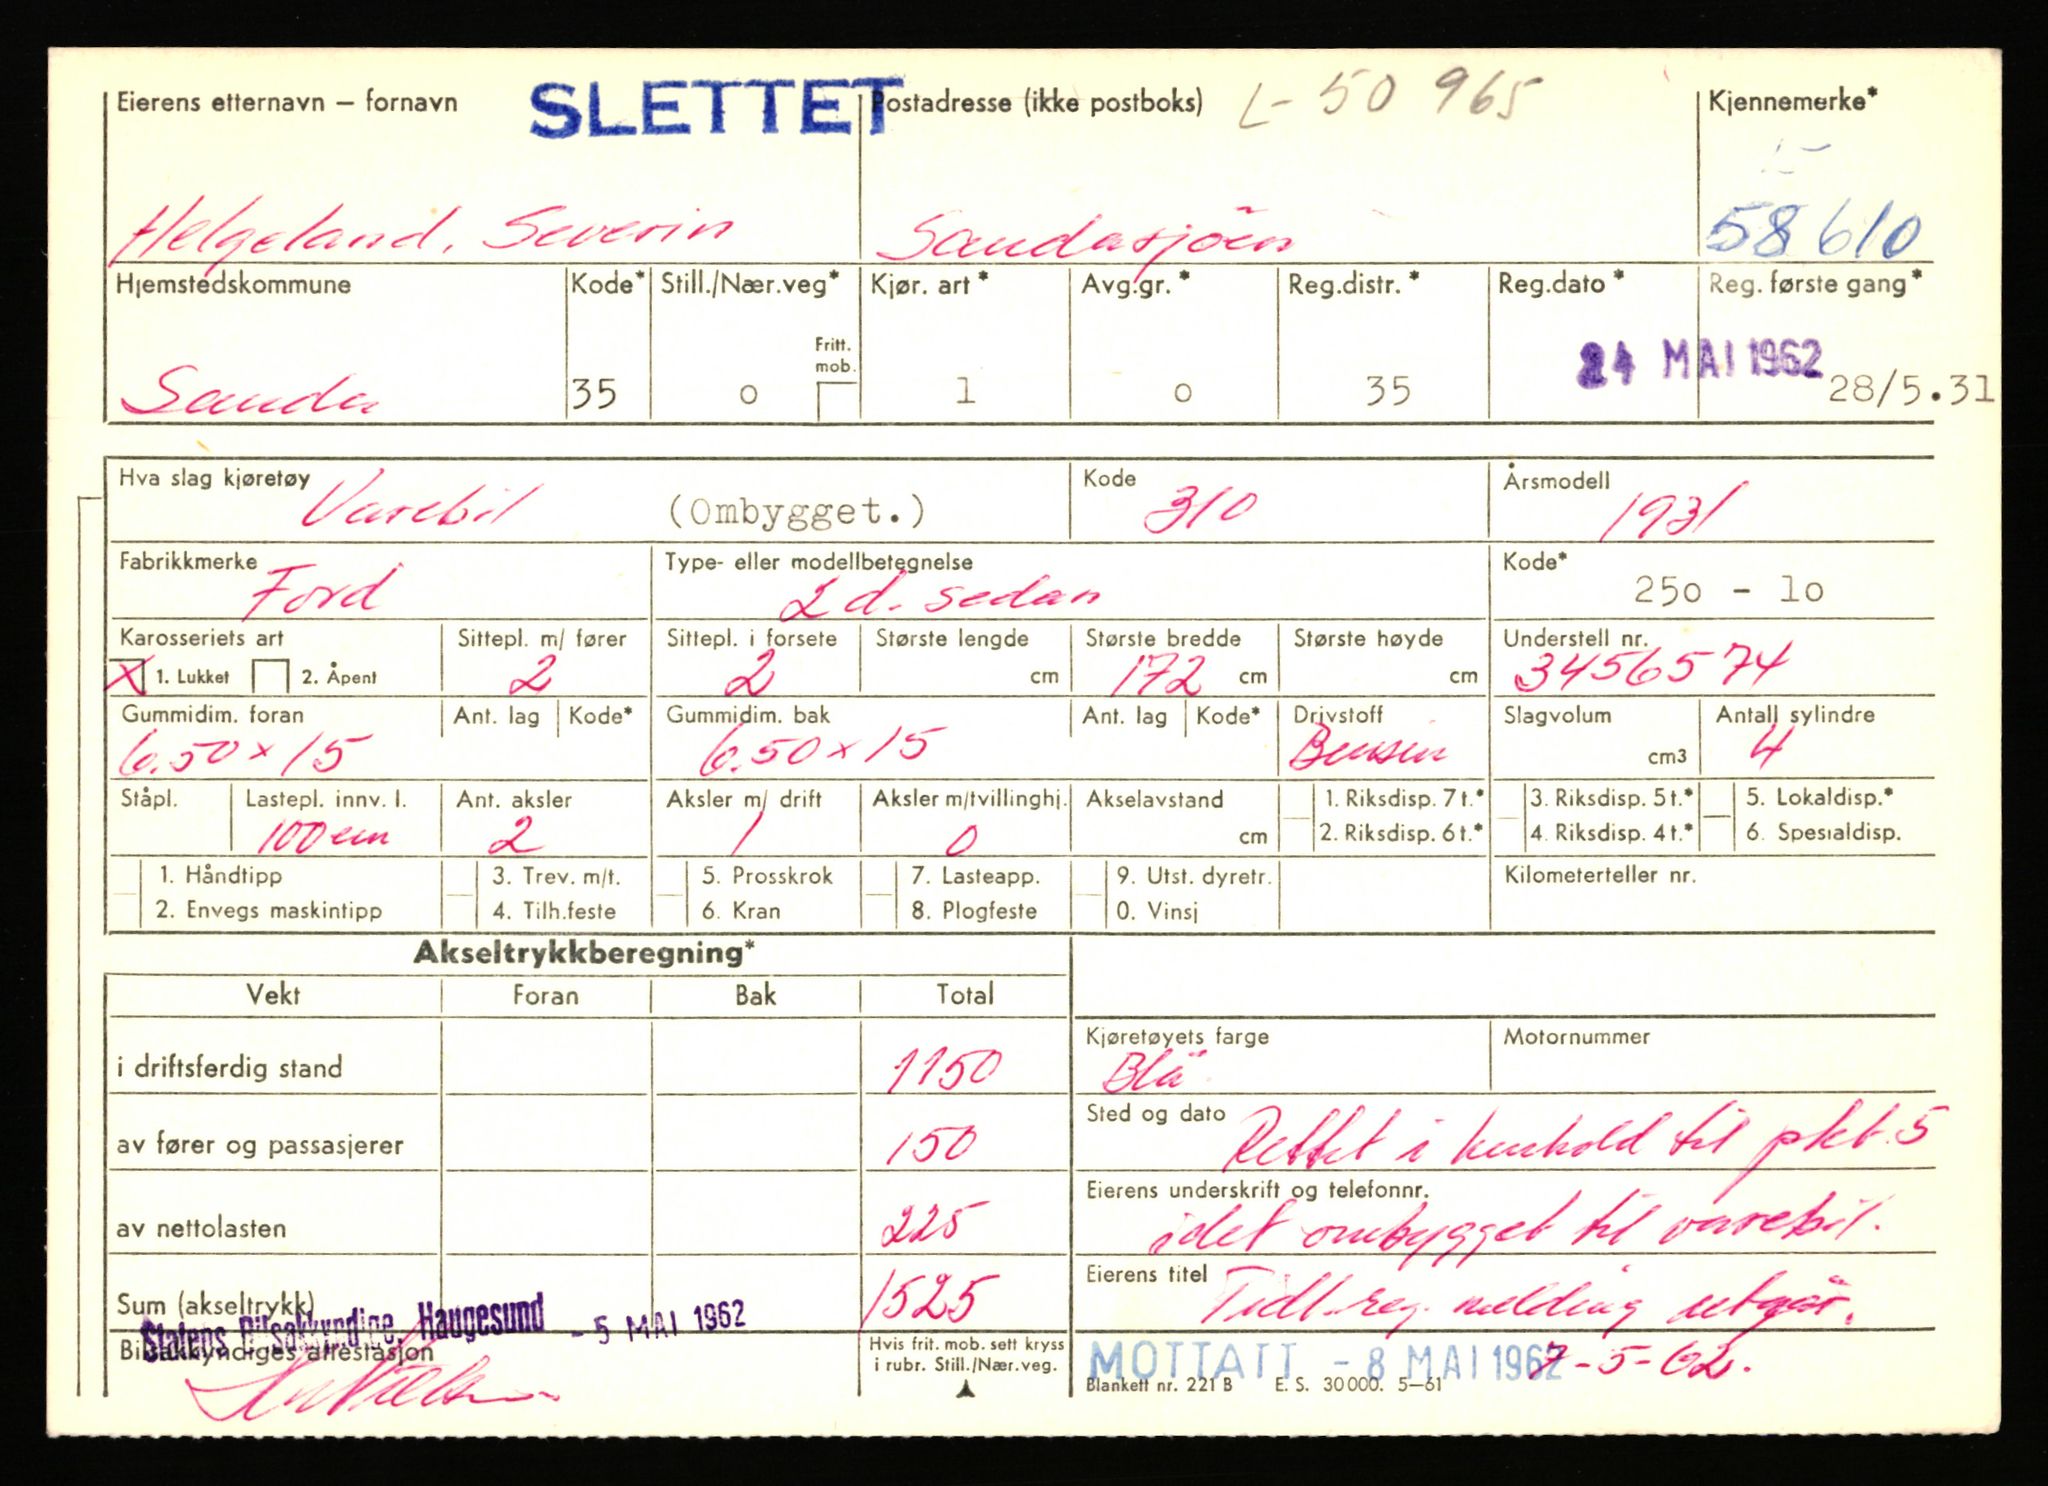 SLETTET L-50 965
Eierens etternavn – fornavn Postadresse (ikke postboks) Kjennemerke*
L-
Helgeland, Severin Saudasjöen 58610
Hjemstedskommune Kode* Still./Nær.veg* Kjør. art* Avg.gr.* Reg.distr.* Reg.dato* Reg. første gang*
Fritt. mob.
Sauda 35 0 1 0 35 24 MAI 1962 28/5.31
Hva slag kjøretøy Kode Årsmodell
Varebil (Ombygget.) 310 1931
Fabrikkmerke Type- eller modellbetegnelse Kode*
Ford 2 d. sedan 250 - 10
Karosseriets art Sittepl. m/ fører Sittepl. i forsete Største lengde Største bredde Største høyde Understell nr.
X 1. Lukket 2. Åpent 2 2 cm 172 cm cm 3456574
Gummidim. foran Ant. lag Kode* Gummidim. bak Ant. lag Kode* Drivstoff Slagvolum Antall sylindre
6.50 x 15 6.50 x 15 Bensin cm3 4
Ståpl. Lastepl. innv. l. Ant. aksler Aksler m/ drift Aksler m/tvillinghj. Akselavstand 1. Riksdisp. 7 t.* 3. Riksdisp. 5 t.* 5. Lokaldisp.*
100 cm 2 1 0 cm 2. Riksdisp. 6 t.* 4. Riksdisp. 4 t.* 6. Spesialdisp.
1. Håndtipp 3. Trev. m/t. 5. Prosskrok 7. Lasteapp. 9. Utst. dyretr. Kilometerteller nr.
2. Envegs maskintipp 4. Tilh.feste 6. Kran 8. Plogfeste 0. Vinsj
Akseltrykkberegning*
Vekt Foran Bak Total
i driftsferdig stand 1150
av fører og passasjerer 150
av nettolasten 225
Sum (akseltrykk) 1525
Statens Bilsakkyndige, Haugesund - 5 MAI 1962
Bilsakkyndiges attestasjon
Hvis frit. mob. sett kryss
i rubr. Still./Nær.veg.
Kjøretøyets farge Motornummer
Blå
Sted og dato
Rettet i henhold til pkt. 5
Eierens underskrift og telefonnr.
idet ombygget til varebil.
Eierens titel
Tidl. reg. melding utgår.
MOTTATT - 8 MAI 1962 7-5-62.
Blankett nr. 221 B E. S. 30000. 5–61